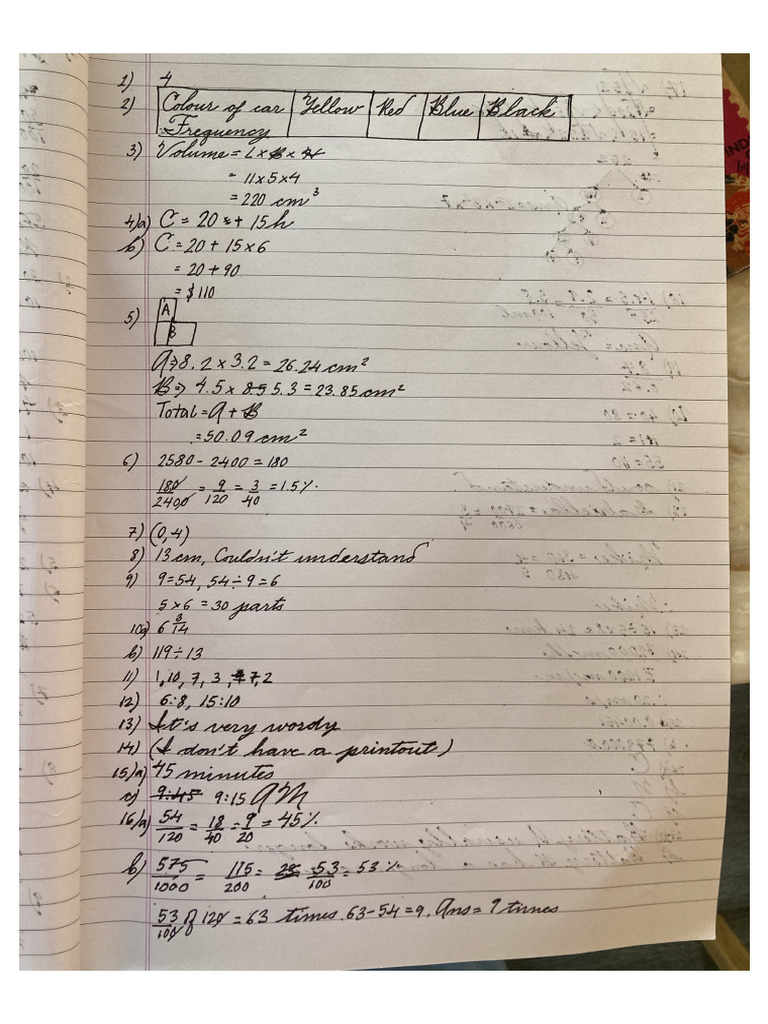 1) 4
2) Colour of car Yellow Red Blue Black
Frequency
3) Volume = L × B × H
= 11 × 5 × 4
= 220 cm³
4)a) C = 20 + 15h
b) C = 20 + 15 × 6
= 20 + 90
= $110
5) A
B
A ⇒ 8.2 × 3.2 = 26.24 cm²
B ⇒ 4.5 × 5.3 = 23.85 cm²
Total = A + B
= 50.09 cm²
6) 2580 - 2400 = 180
180/2400 = 9/120 = 3/40 = 1.5%
7) (0,4)
8) 13 cm, Couldn't understand
9) 9 = 54, 54 ÷ 9 = 6
5 × 6 = 30 parts
10a) 6 3/14
b) 119 ÷ 13
11) 1, 10, 7, 3, 7, 2
12) 6:8, 15:10
13) It's very wordy
14) (I don't have a printout)
15)a) 45 minutes
c) 9:45 9:15 AM
16)a) 54/120 = 18/40 = 9/20 = 45%
b) 575/1000 = 115/200 = 53/100 = 53%
53/100 of 120 = 63 times. 63 - 54 = 9, Ans = 9 times